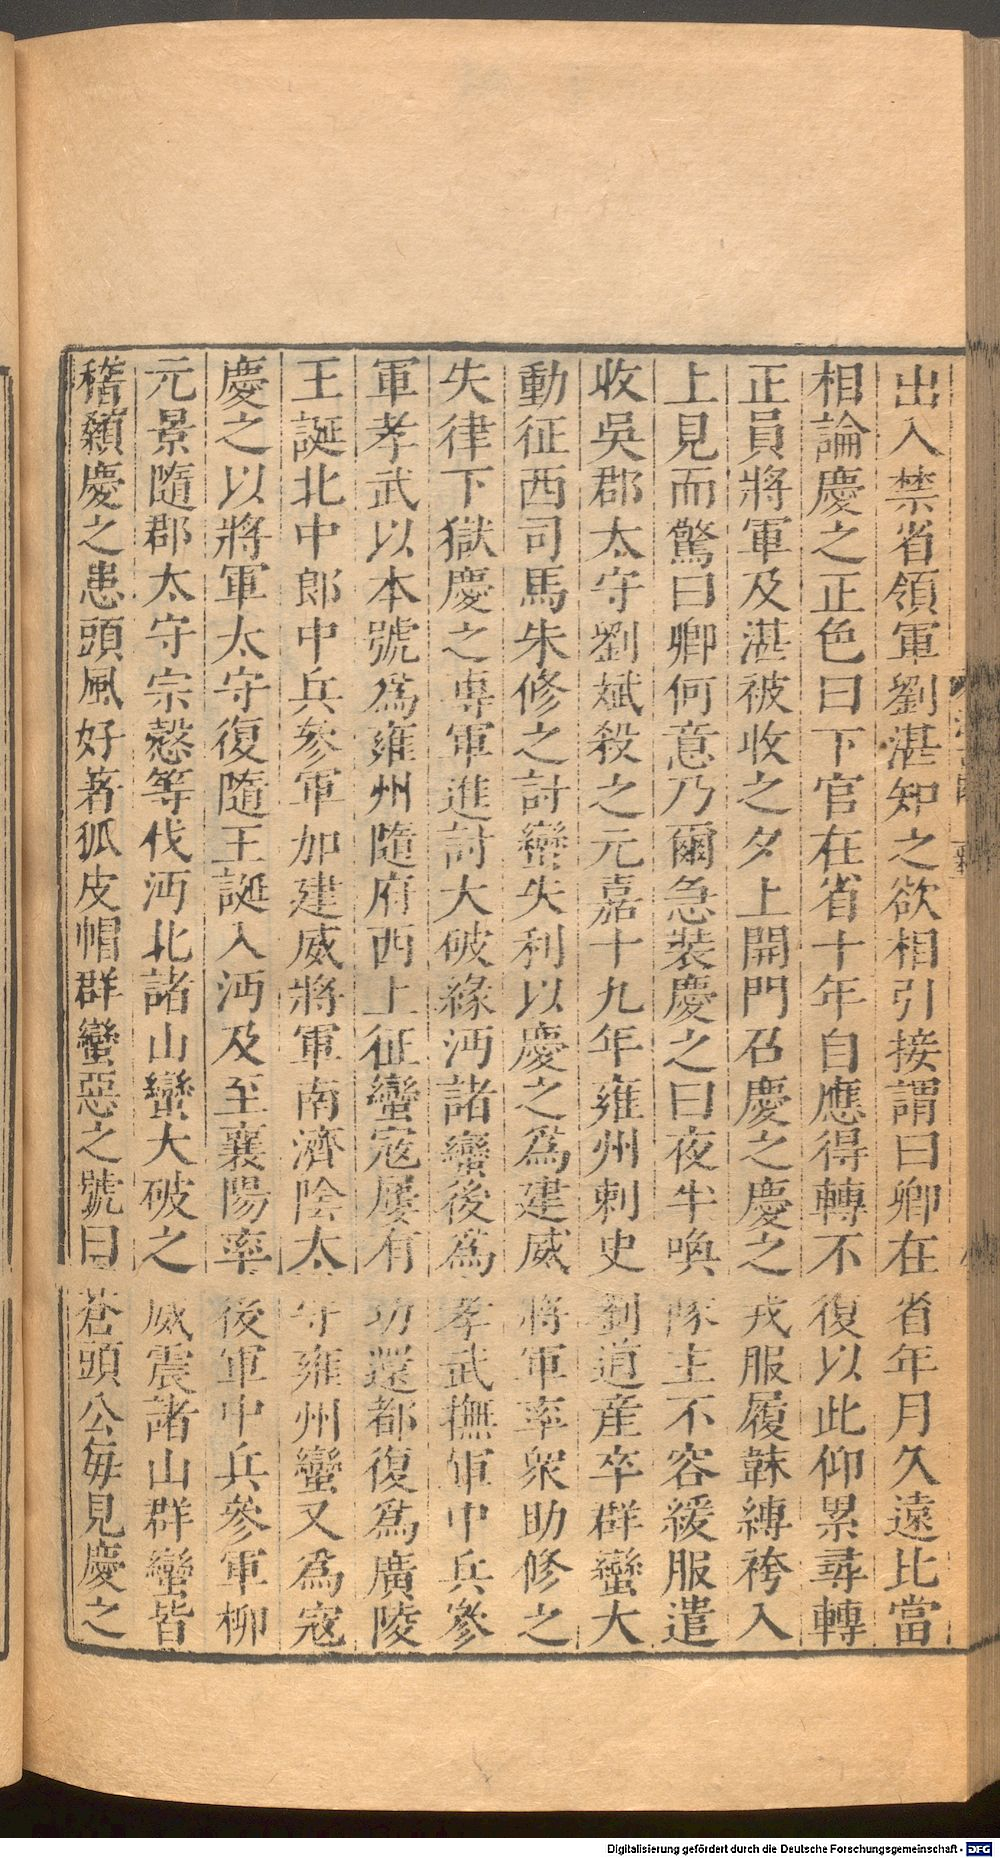 出入禁省領軍劉湛知之欲相引接謂曰卿在省年月久遠比當
相論慶之正色曰下官在省十年自應得轉不復以此仰累尋轉
正員將軍及湛被收之夕上開門召慶之慶之戎服履韎縛袴入
上見而驚曰卿何意乃爾急裝慶之曰夜半喚隊主不容緩服遣
收吳郡太守劉斌殺之元嘉十九年雍州刺史劉道產卒群蠻大
動征西司馬朱修之討蠻失利以慶之爲建威將軍率衆助修之
失律下獄慶之專軍進討大破緣沔諸蠻後爲孝武撫軍中兵參
軍孝武以本號爲雍州隨府西上征蠻寇屢有功還都復爲廣陵
王誕北中郎中兵參軍加建威將軍南濟陰太守雍州蠻又爲寇
慶之以將軍太守復隨王誕入沔及至襄陽率後軍中兵參軍柳
元景隨郡太守宗愨等伐沔北諸山蠻大破之威震諸山群蠻皆
稽顙慶之患頭風好著狐皮帽群蠻惡之號曰蒼頭公每見慶之
Digitalisierung gefördert durch die Deutsche Forschungsgemeinschaft - DFG